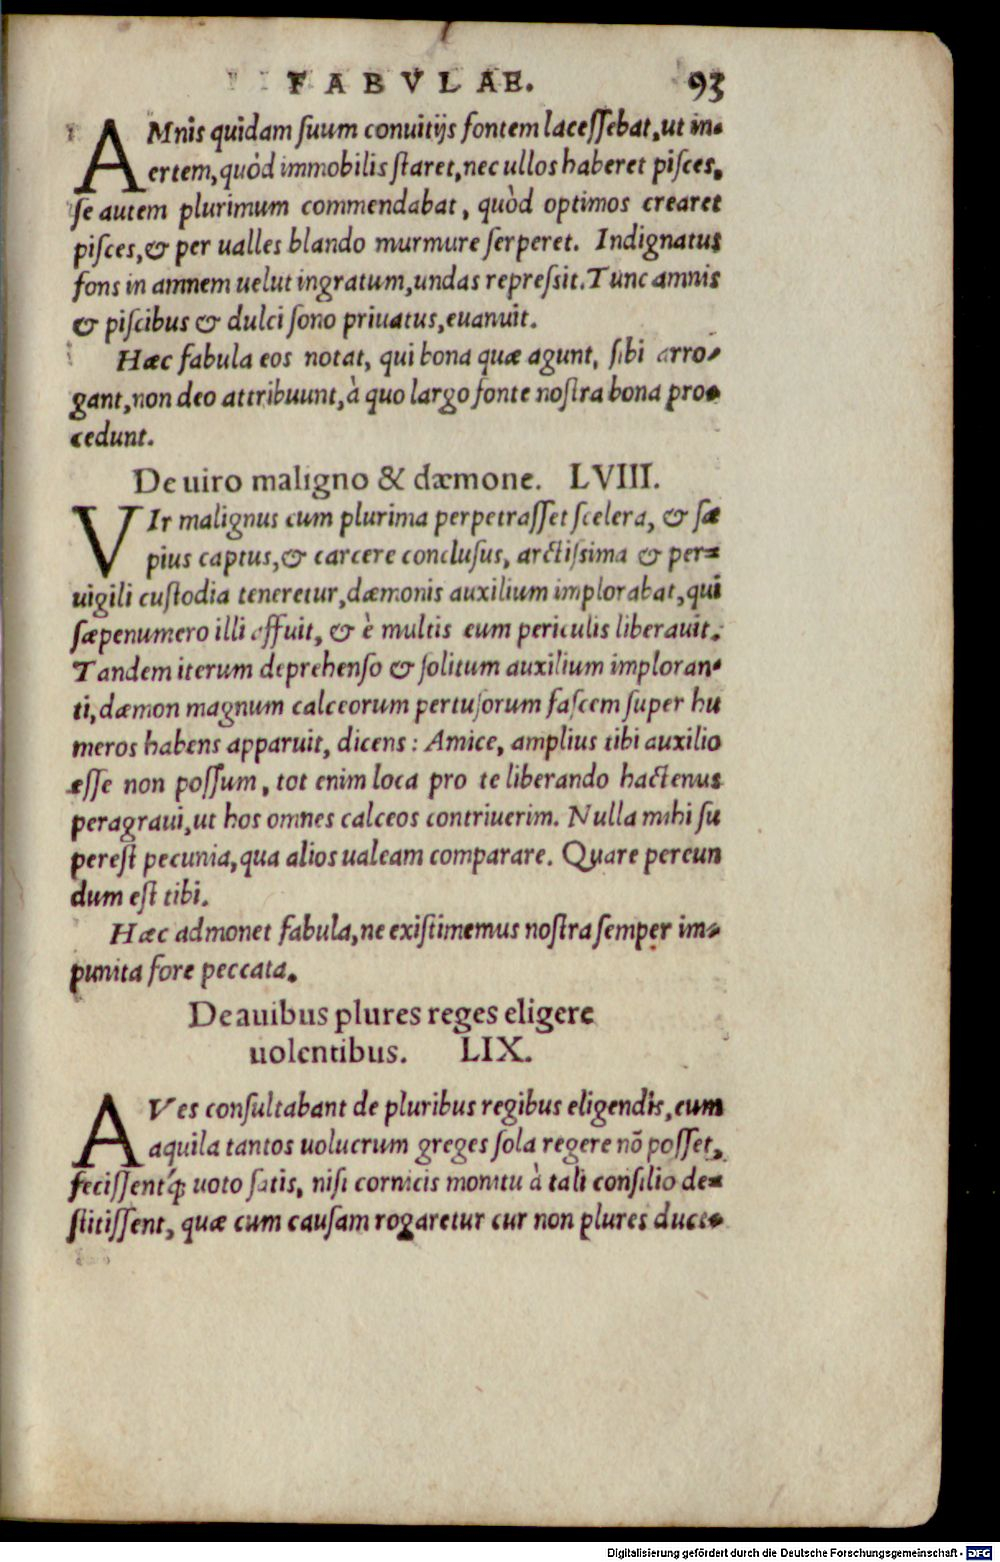 FABVLAE. 93
AMnis quidam ſuum conuitijs fontem laceſſebat, ut in-
ertem, quòd immobilis ſtaret, nec ullos haberet piſces,
ſe autem plurimum commendabat, quòd optimos crearet
piſces, & per ualles blando murmure ſerperet. Indignatus
fons in amnem uelut ingratum, undas repreſsit. Tunc amnis
& piſcibus & dulci ſono priuatus, euanuit.
Hæc fabula eos notat, qui bona quæ agunt, ſibi arro-
gant, non deo attribuunt, à quo largo fonte noſtra bona pro-
cedunt.
De uiro maligno & dæmone. LVIII.
VIr malignus cum plurima perpetraſſet ſcelera, & ſæ
pius captus, & carcere concluſus, arctiſsima & per-
uigili cuſtodia teneretur, dæmonis auxilium implorabat, qui
ſæpenumero illi affuit, & è multis eum periculis liberauit.
Tandem iterum deprehenſo & ſolitum auxilium imploran-
ti, dæmon magnum calceorum pertuſorum faſcem ſuper hu
meros habens apparuit, dicens: Amice, amplius tibi auxilio
eſſe non poſſum, tot enim loca pro te liberando hactenus
peragraui, ut hos omnes calceos contriuerim. Nulla mihi ſu
pereſt pecunia, qua alios ualeam comparare. Quare pereun
dum eſt tibi.
Hæc admonet fabula, ne exiſtimemus noſtra ſemper im-
punita fore peccata.
De auibus plures reges eligere
uolentibus. LIX.
AVes conſultabant de pluribus regibus eligendis, cum
aquila tantos uolucrum greges ſola regere nõ poſſet,
feciſſentq́; uoto ſatis, niſi cornicis monitu à tali conſilio de-
ſtitiſſent, quæ cum cauſam rogaretur cur non plures duce-
Digitalisierung gefördert durch die Deutsche Forschungsgemeinschaft - DFG